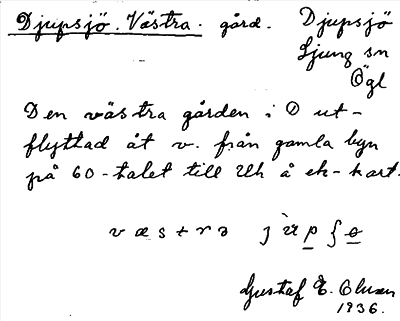 Djupsjö. Västra. gård. Djupsjö
Ljung sn
Ögl
Den västra gården i D ut-
flyttad åt v. från gamla byn
på 60-talet till Uh å ek-kart.
væstrə
Gustaf E. Olsson
1936.